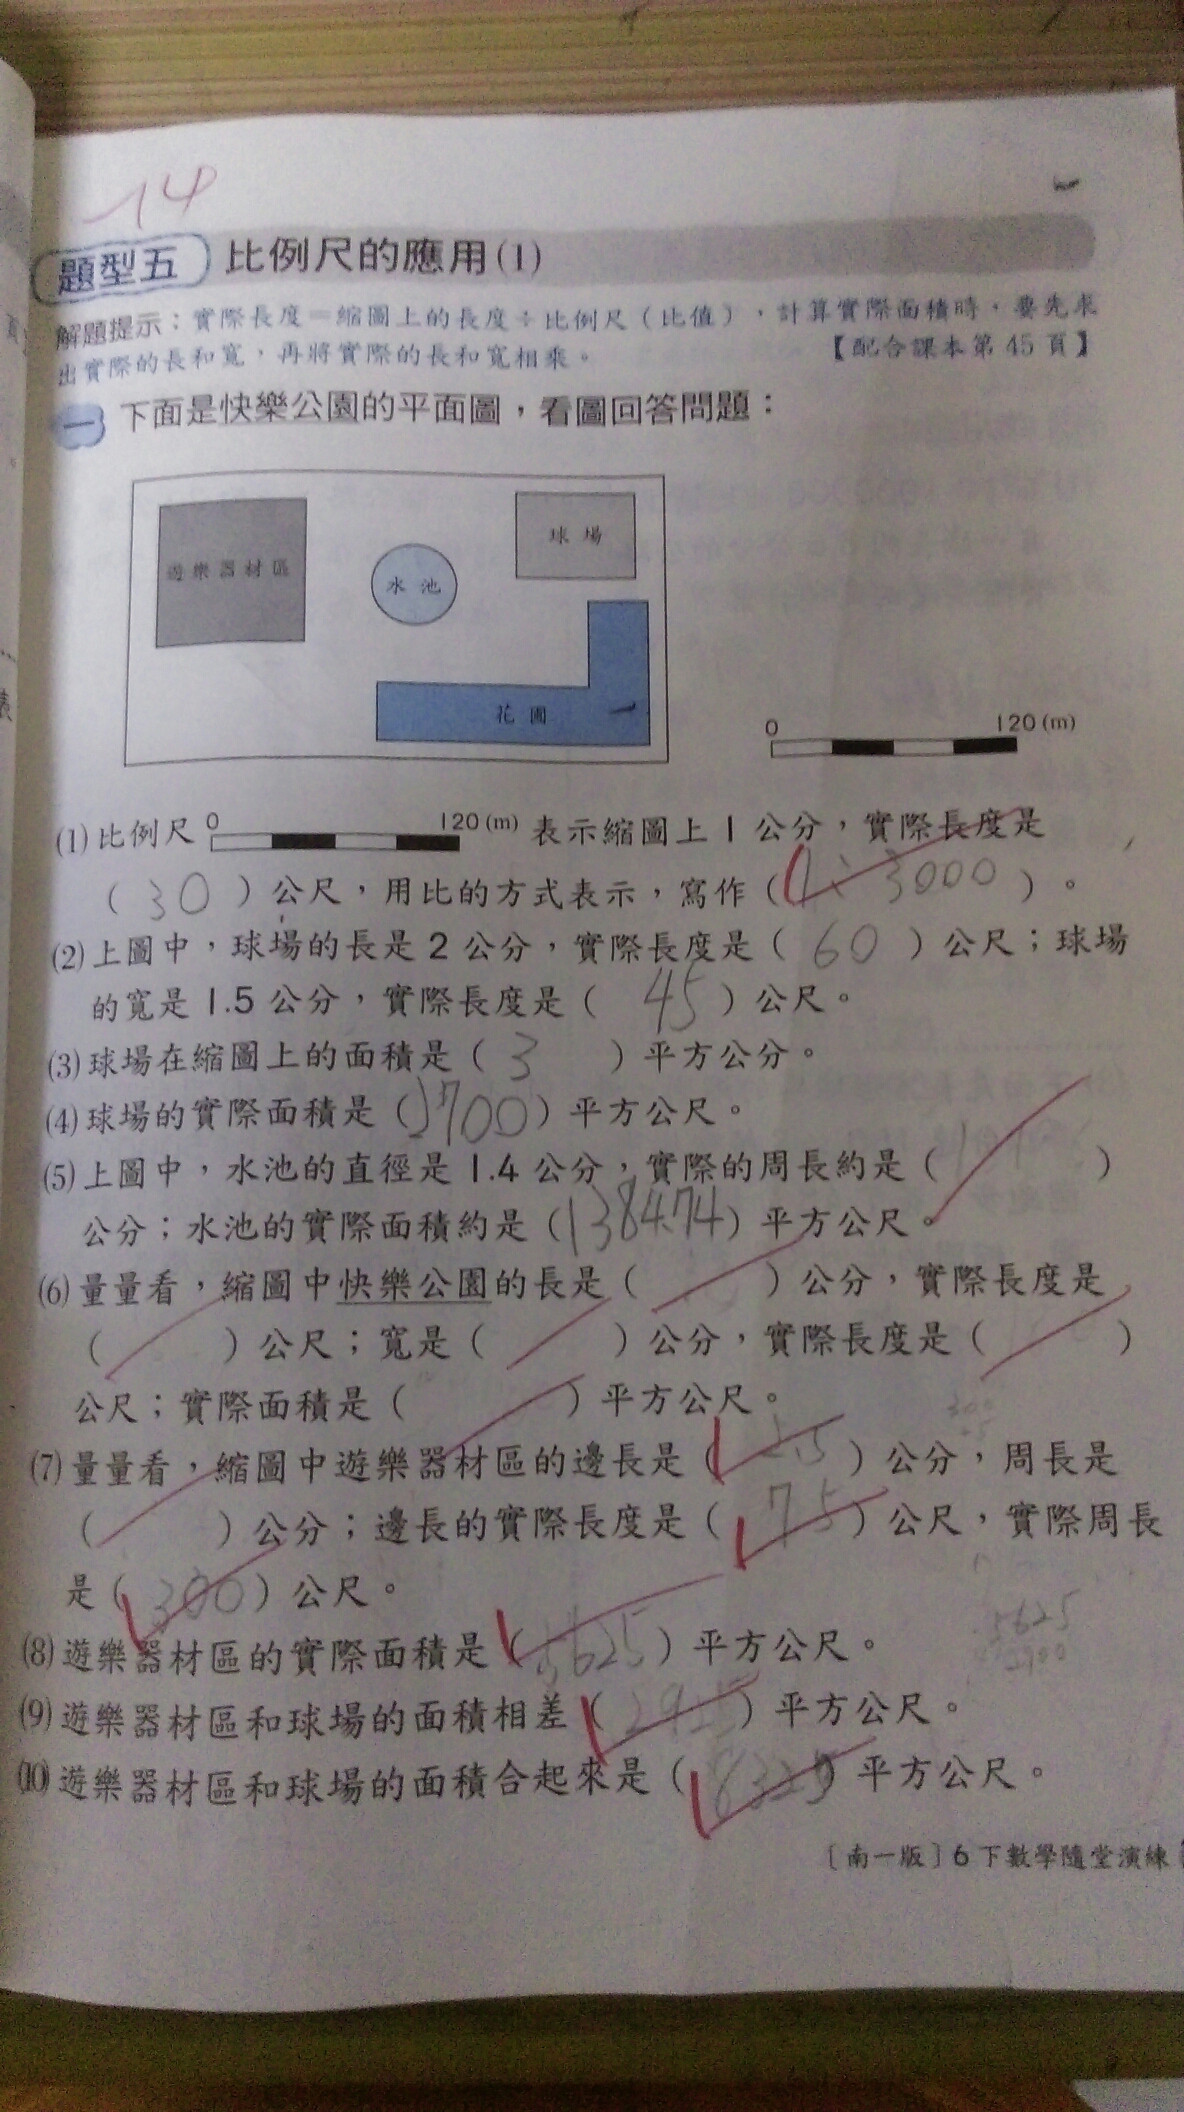 14
題型五 比例尺的應用(1)
解題提示：實際長度＝縮圖上的長度÷比例尺（比值），計算實際面積時，要先求
出實際的長和寬，再將實際的長和寬相乘。 【配合課本第45頁】
一 下面是快樂公園的平面圖，看圖回答問題：
遊樂器材區
水池
球場
花圃
0 120(m)
(1)比例尺 0 120(m) 表示縮圖上1公分，實際長度是
（30）公尺，用比的方式表示，寫作（1：3000）。
(2)上圖中，球場的長是2公分，實際長度是（60）公尺；球場
的寬是1.5公分，實際長度是（45）公尺。
(3)球場在縮圖上的面積是（3）平方公分。
(4)球場的實際面積是（2700）平方公尺。
(5)上圖中，水池的直徑是1.4公分，實際的周長約是（ ）
公分；水池的實際面積約是（1384.74）平方公尺。
(6)量量看，縮圖中快樂公園的長是（ ）公分，實際長度是
（ ）公尺；寬是（ ）公分，實際長度是（ ）
公尺；實際面積是（ ）平方公尺。
(7)量量看，縮圖中遊樂器材區的邊長是（2.5）公分，周長是
（ ）公分；邊長的實際長度是（75）公尺，實際周長
是（300）公尺。
(8)遊樂器材區的實際面積是（5625）平方公尺。
5625
2700
(9)遊樂器材區和球場的面積相差（2925）平方公尺。
(10)遊樂器材區和球場的面積合起來是（8325）平方公尺。
〔南一版〕6下數學隨堂演練